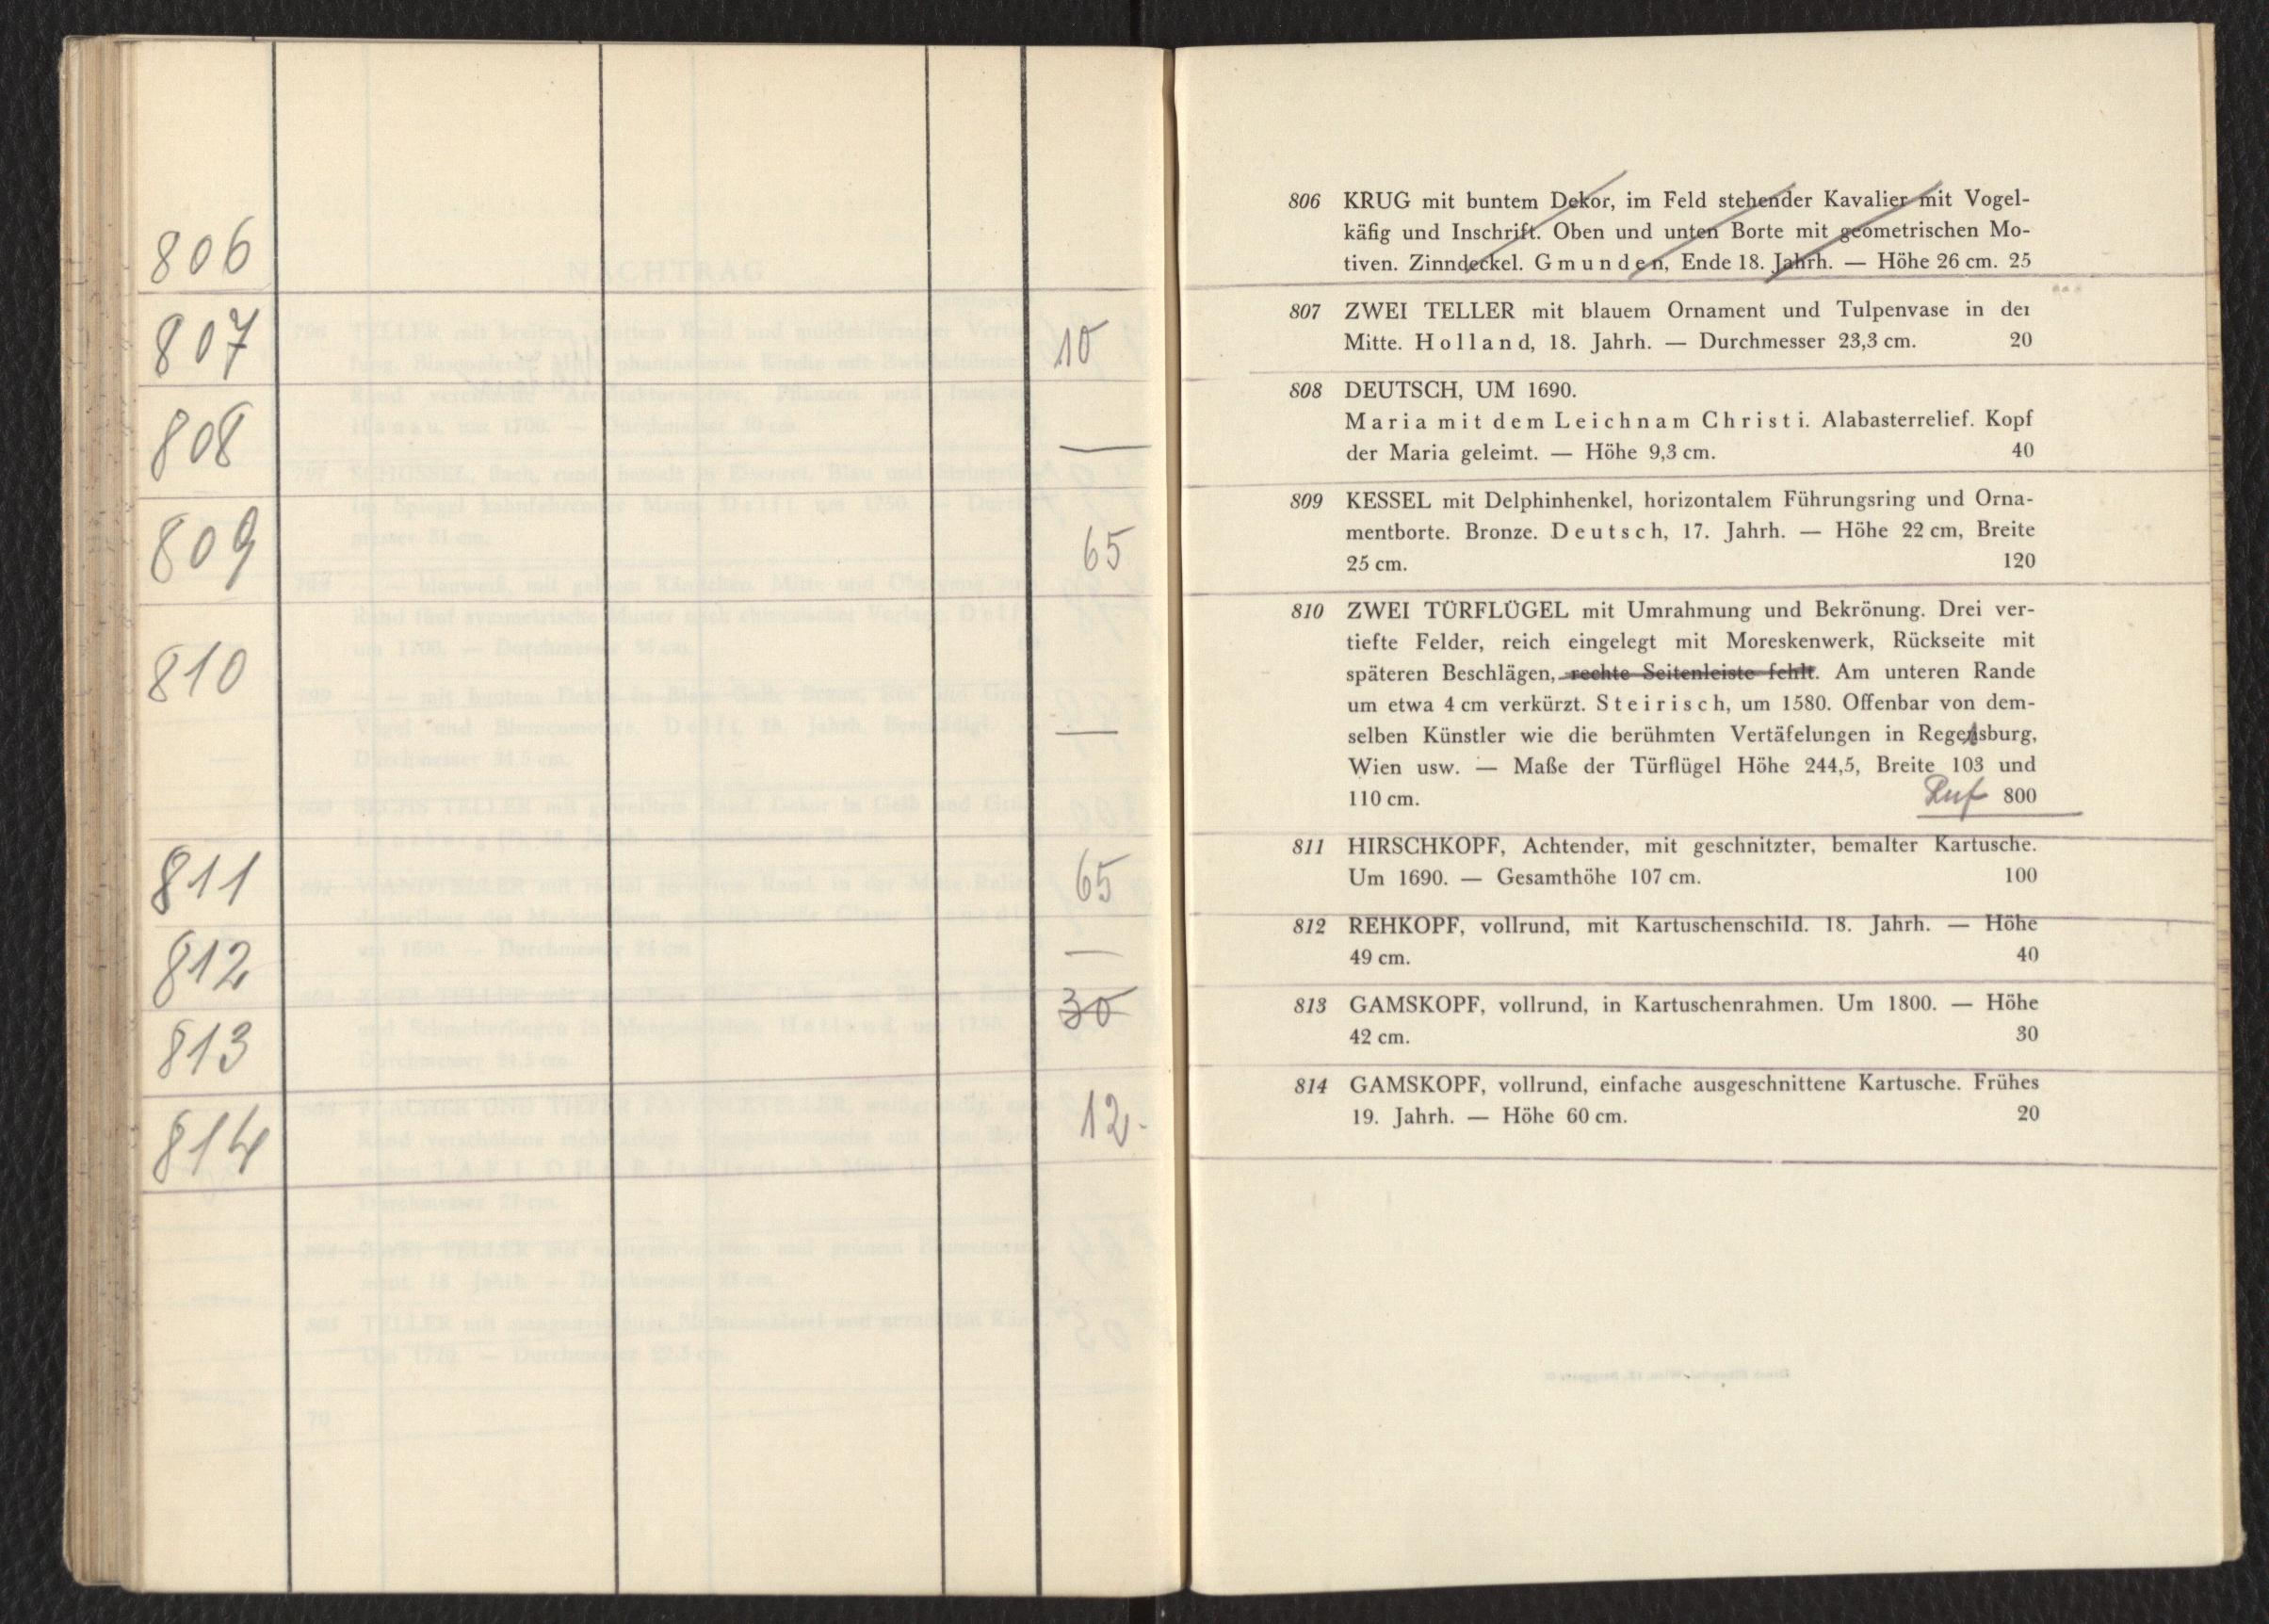 806
807 10
808 —
809 65
810 —
811 65
812 —
813 30
814 12.-
806 KRUG mit buntem Dekor, im Feld stehender Kavalier mit Vogel-
käfig und Inschrift. Oben und unten Borte mit geometrischen Mo-
tiven. Zinndeckel. Gmunden, Ende 18. Jahrh. — Höhe 26 cm. 25
807 ZWEI TELLER mit blauem Ornament und Tulpenvase in der
Mitte. Holland, 18. Jahrh. — Durchmesser 23,3 cm. 20
808 DEUTSCH, UM 1690.
Maria mit dem Leichnam Christi. Alabasterrelief. Kopf
der Maria geleimt. — Höhe 9,3 cm. 40
809 KESSEL mit Delphinhenkel, horizontalem Führungsring und Orna-
mentborte. Bronze. Deutsch, 17. Jahrh. — Höhe 22 cm, Breite
25 cm. 120
810 ZWEI TÜRFLÜGEL mit Umrahmung und Bekrönung. Drei ver-
tiefte Felder, reich eingelegt mit Moreskenwerk, Rückseite mit
späteren Beschlägen, rechte Seitenleiste fehlt. Am unteren Rande
um etwa 4 cm verkürzt. Steirisch, um 1580. Offenbar von dem-
selben Künstler wie die berühmten Vertäfelungen in Regensburg,
Wien usw. — Maße der Türflügel Höhe 244,5, Breite 103 und
110 cm. Ruf 800
811 HIRSCHKOPF, Achtender, mit geschnitzter, bemalter Kartusche.
Um 1690. — Gesamthöhe 107 cm. 100
812 REHKOPF, vollrund, mit Kartuschenschild. 18. Jahrh. — Höhe
49 cm. 40
813 GAMSKOPF, vollrund, in Kartuschenrahmen. Um 1800. — Höhe
42 cm. 30
814 GAMSKOPF, vollrund, einfache ausgeschnittene Kartusche. Frühes
19. Jahrh. — Höhe 60 cm. 20